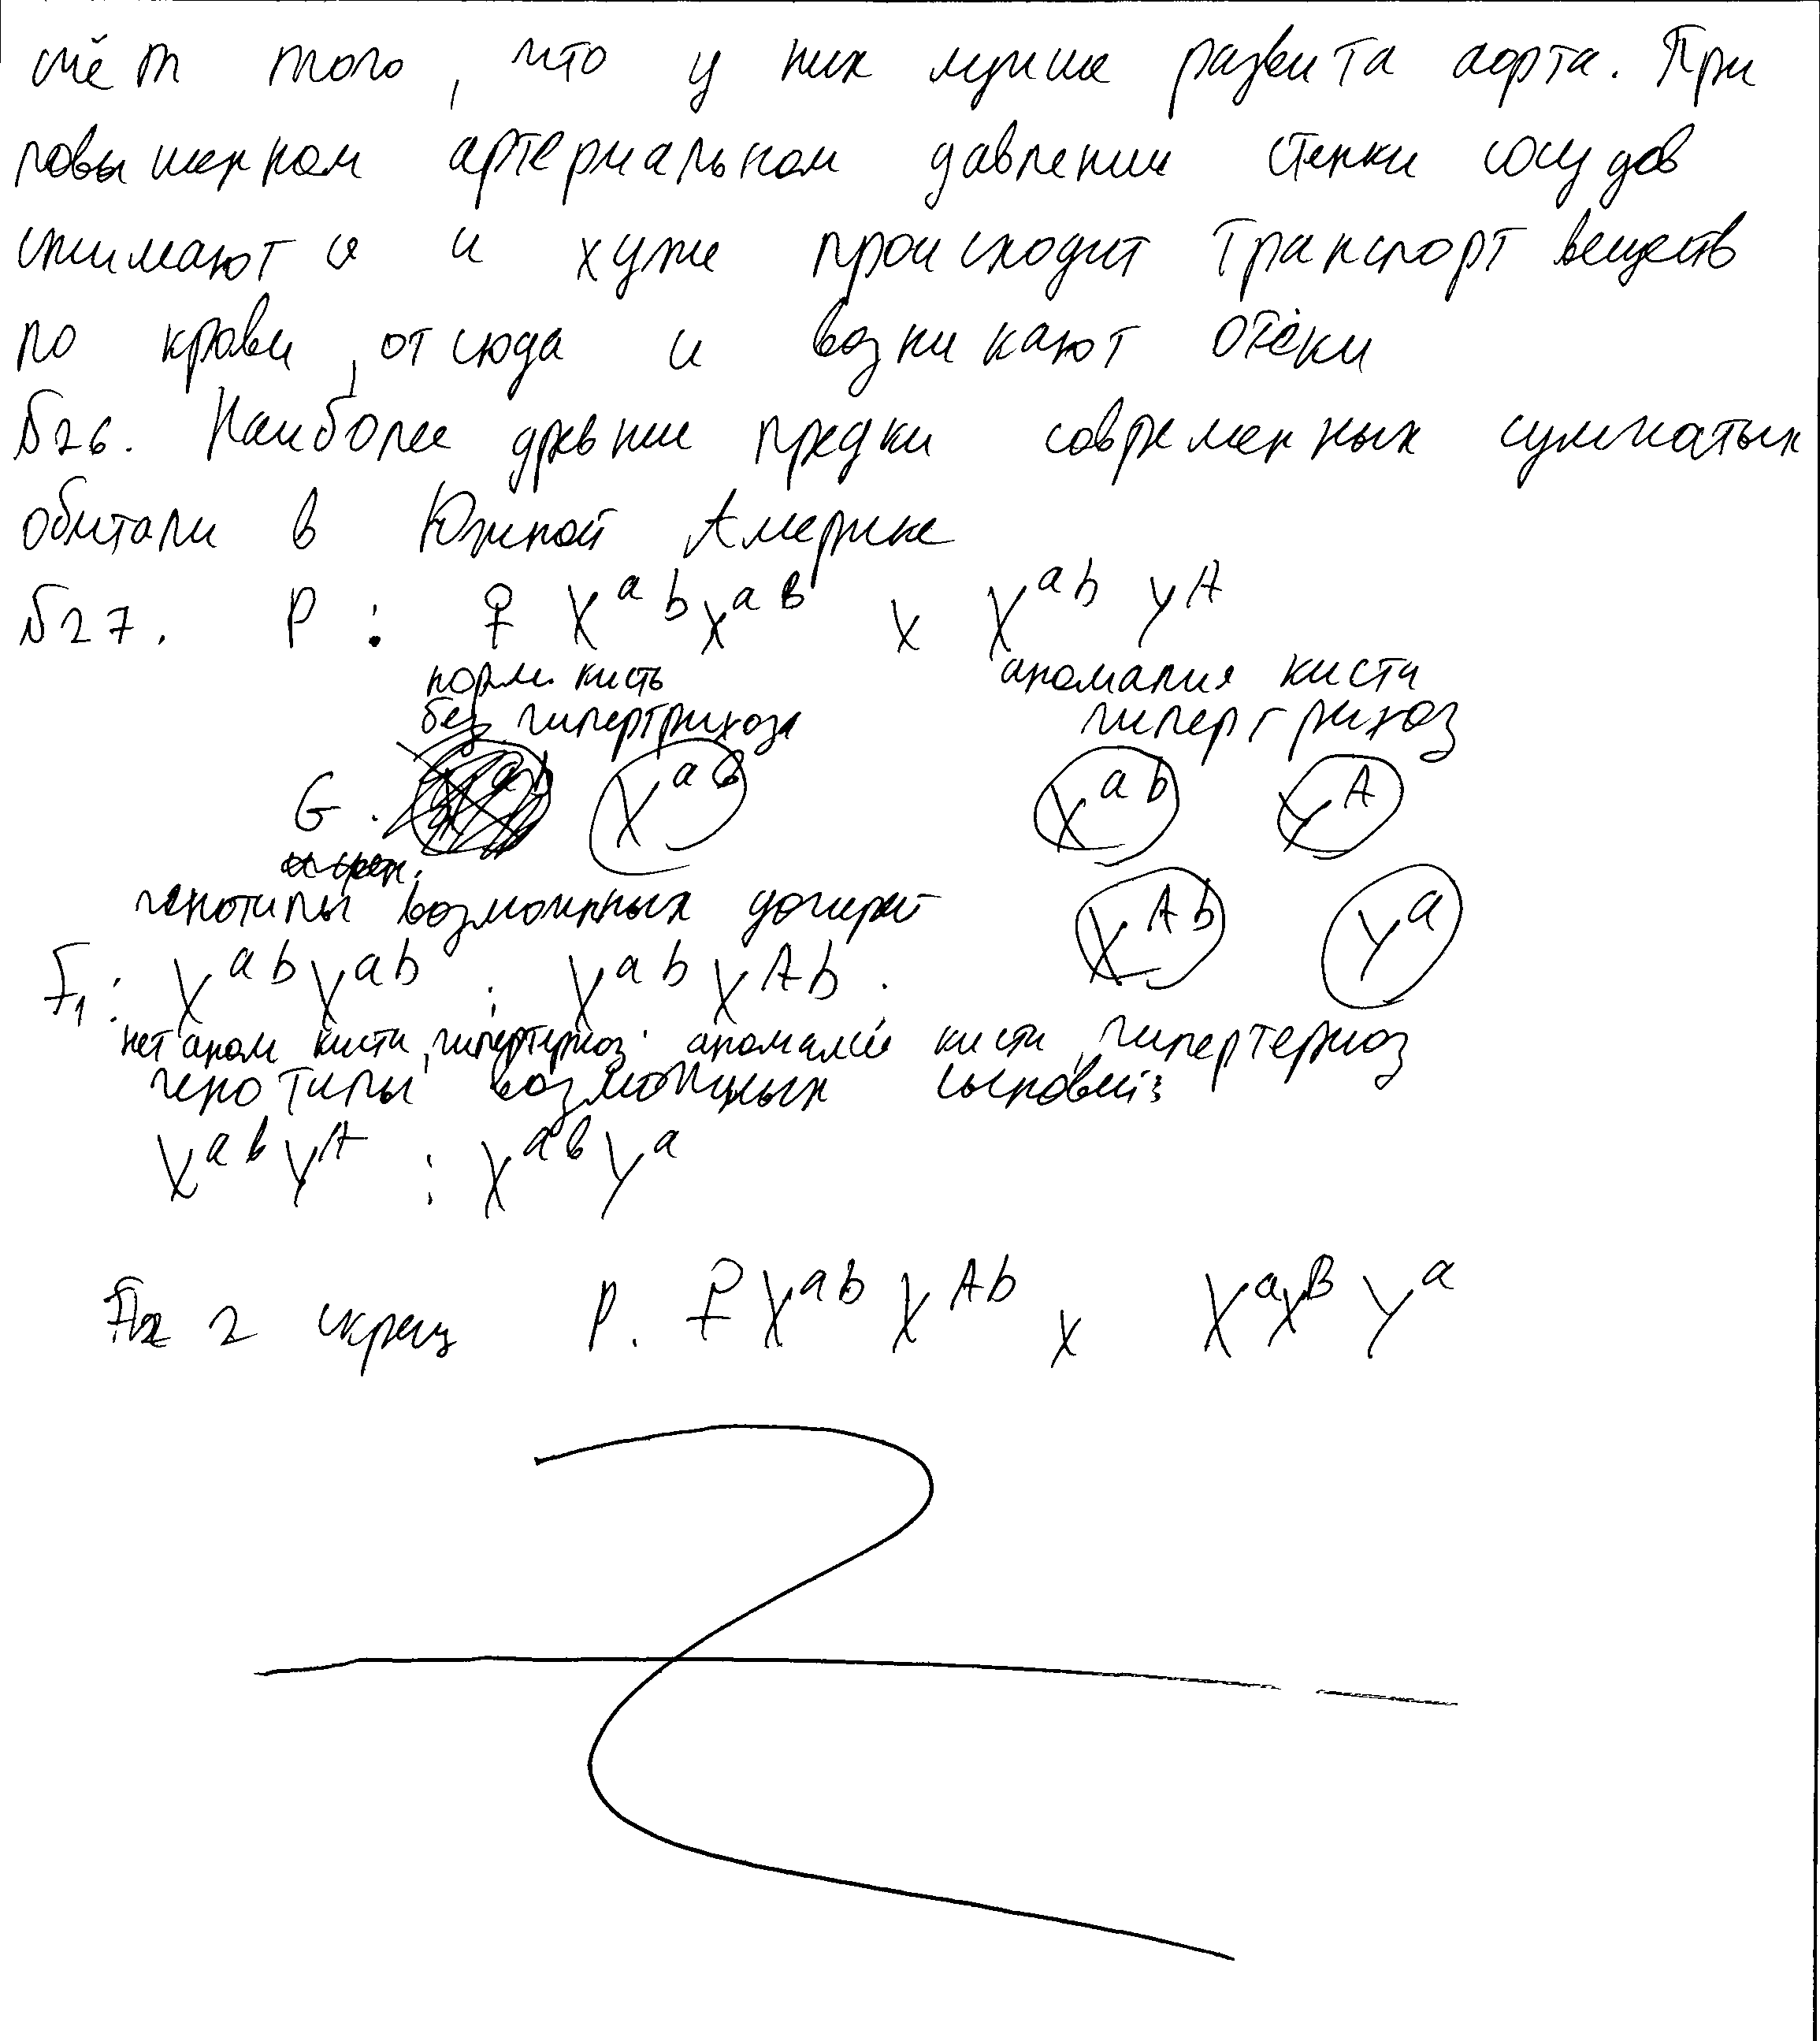 счёт того, что у них лучше развита аорта. При
повышенном артериальном давлении стенки сосудов
сжимаются и хуже происходит транспорт веществ
по крови, отсюда и возникают отёки
№26. Наиболее древние предки современных сумчатых
обитали в Южной Америке
№27. P: ♀ X^ab X^ab x X^ab Y^A
норм. кисть аномалия кисти
без гипертрихоза гипертрихоз
G. X^ab X^ab Y^A
генотипы возможных дочерей X^Ab Y^a
F1: X^ab X^ab : X^ab X^Ab.
нет аном кисти, гипертериоз аномалие кисти, гипертериоз
генотипы возможных сыновей:
X^ab Y^A : X^ab Y^a
2 скрещ P. ♀ X^ab X^Ab x X^a X^B Y^a